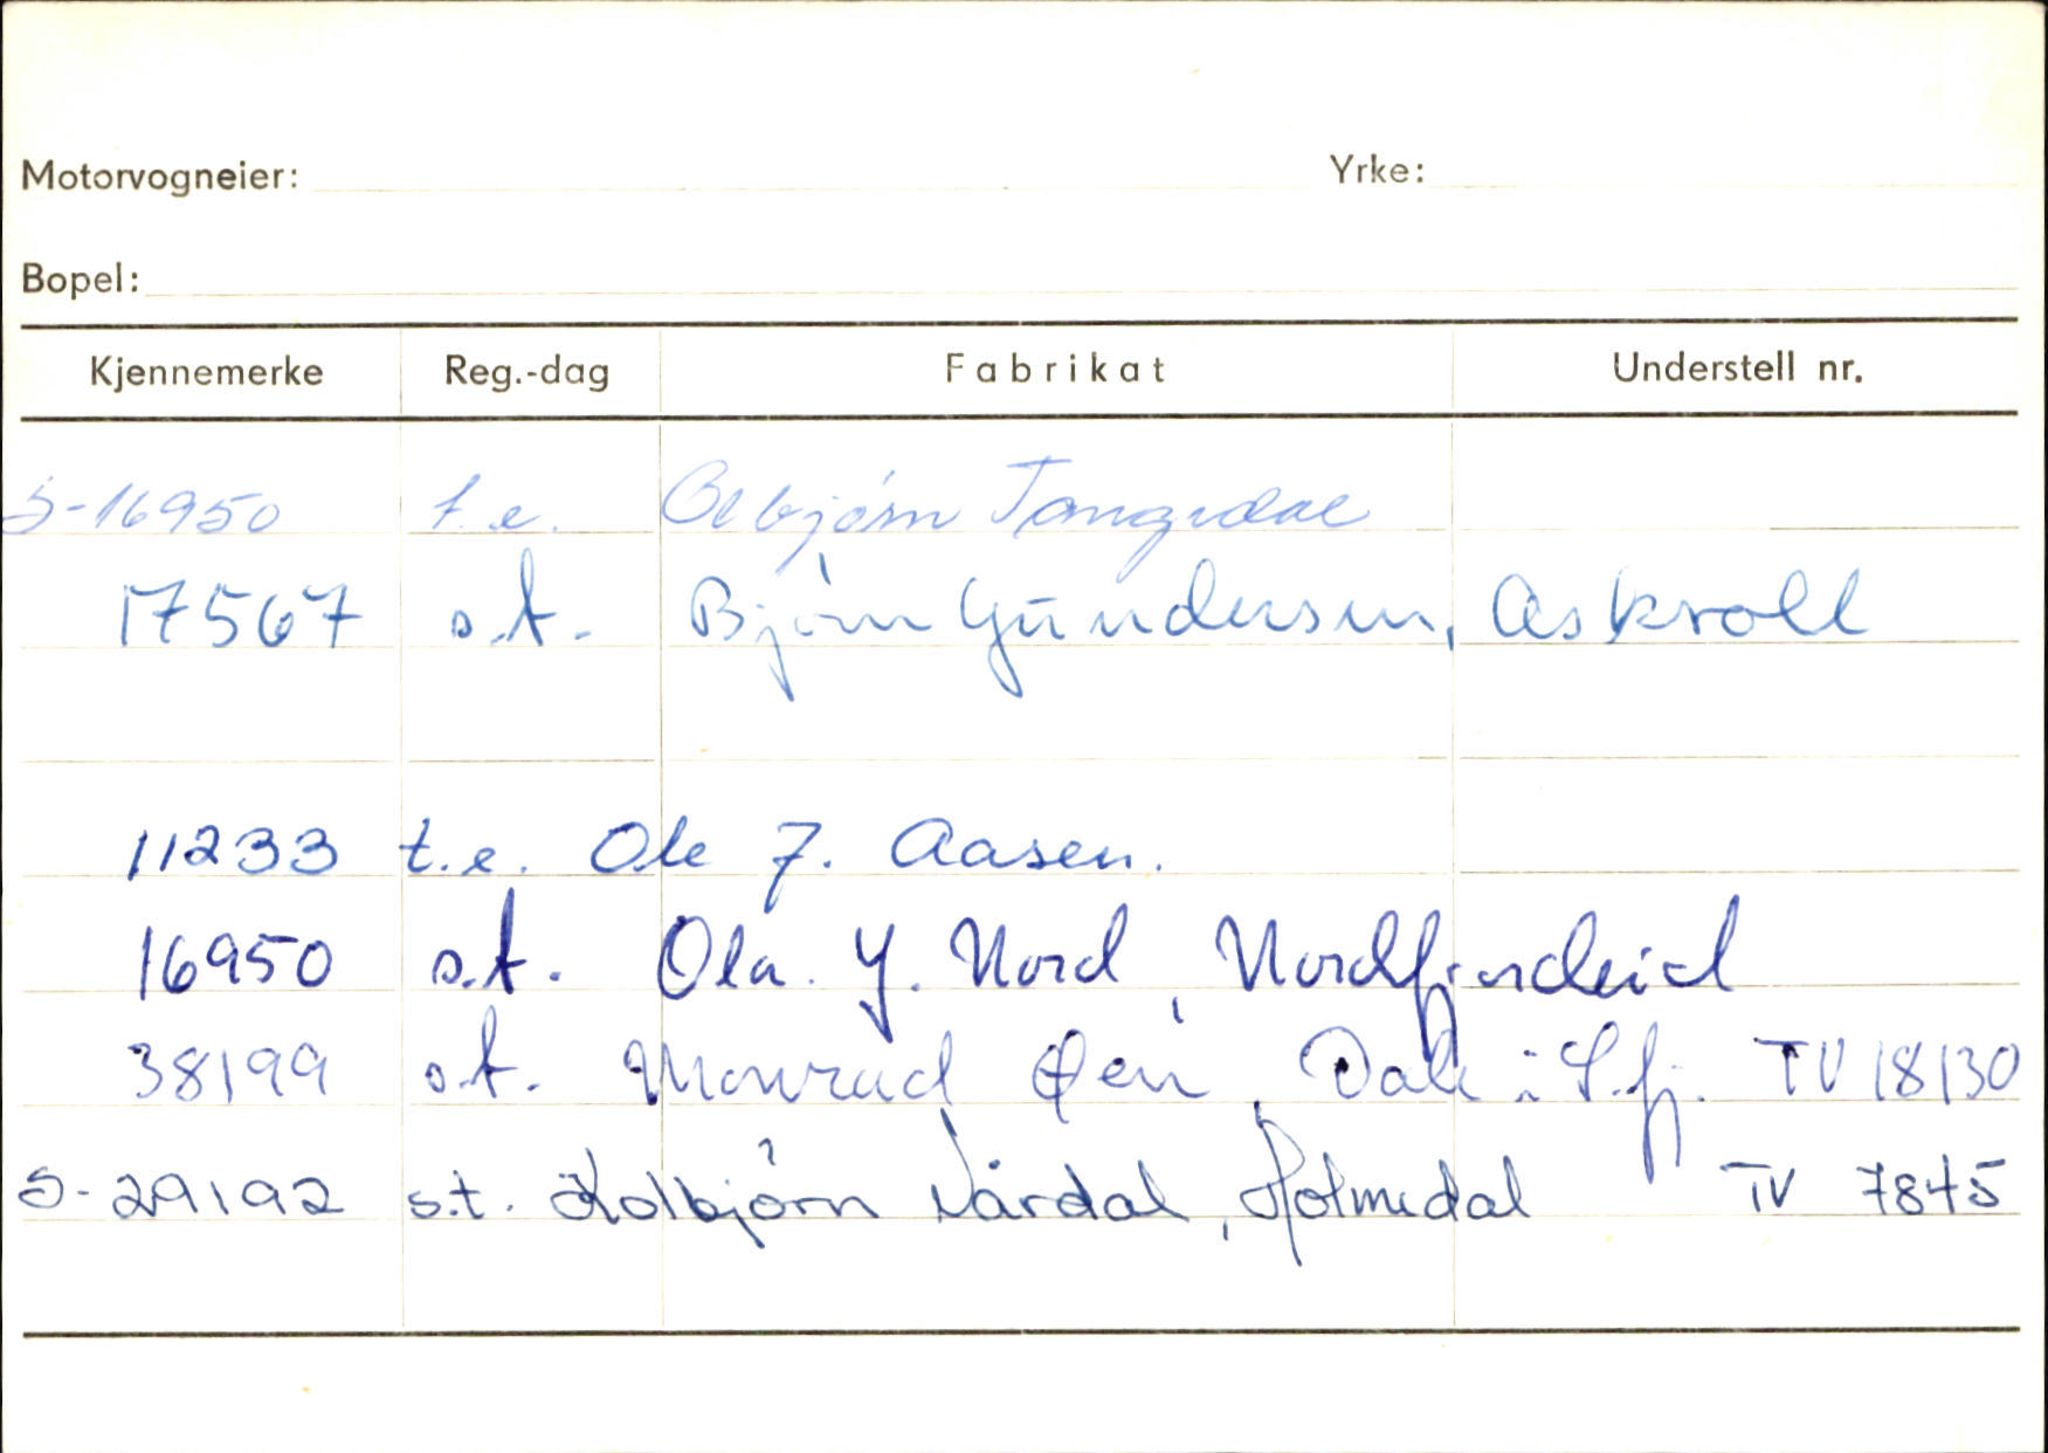 Motorvogneier: Yrke:
Bopel:
Kjennemerke Reg.-dag Fabrikat Understell nr.
S-16950 t.e. Olbjørn Tangedal
17567 s.t. Bjørn Gundersen, Askvoll
11233 t.e. Ole J. Aasen.
16950 s.t. Ola Y. Nord, Nordfjordeid
38199 s.t. Monrad Øen, Dale i S.fj. TV 18130
S-29192 s.t. Kolbjørn Nårdal, Holmedal TV 7875